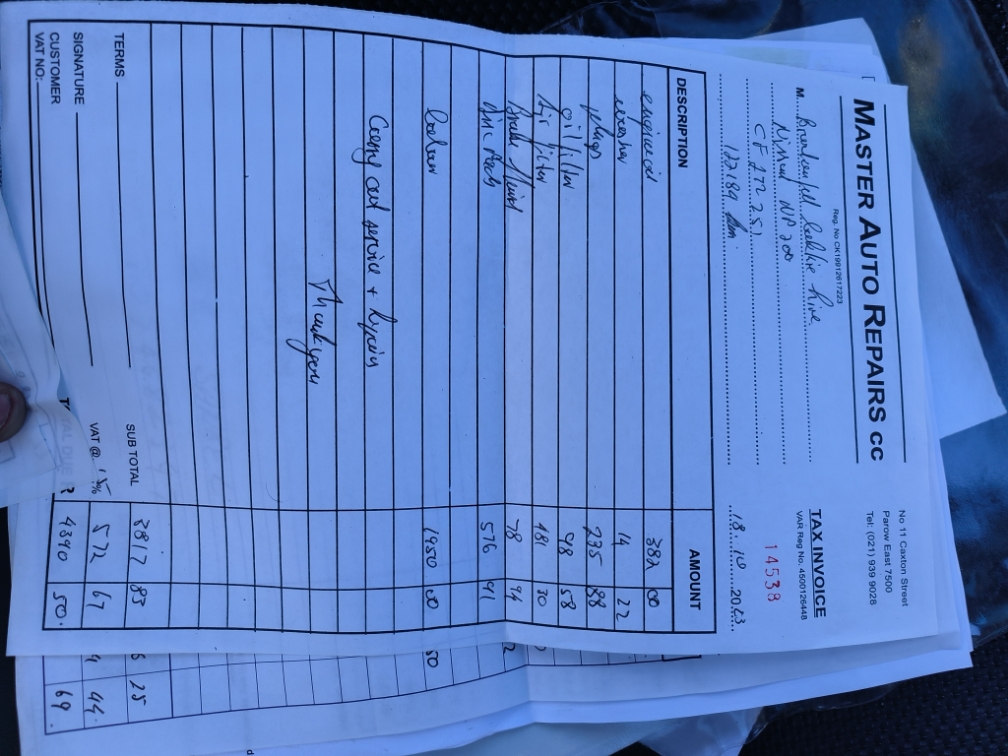 MASTER AUTO REPAIRS CC
Reg. No CK1991/2617223
No 11 Caxton Street
Parow East 7500
Tel: (021) 939 9028
TAX INVOICE
VAR Reg No. 4500126448
14538
M
Nissan NP 200
CF 272 251
122189 km
18. 10 2023
DESCRIPTION AMOUNT
engine oil 382 00
washer 14 22
plugs 235 88
oil filter 98 58
Air filter 181 30
Brake fluid 78 94
Disc Pads 576 91
labour 1950 00
Carry out service + Repairs
Thank you
TERMS SUB TOTAL 3817 83
SIGNATURE VAT @ 15% 572 67
CUSTOMER
VAT NO: TOTAL DUE R 4390 50
50
25
44
69